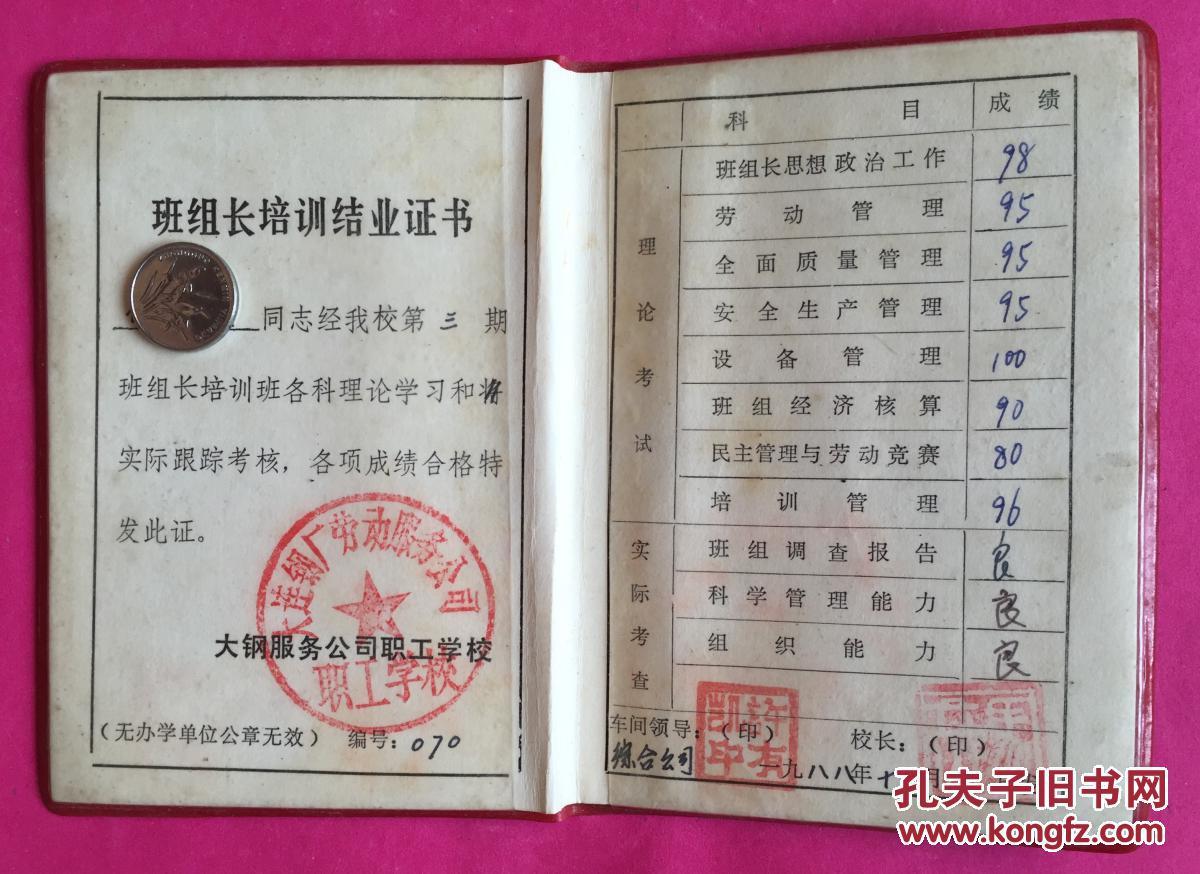 班组长培训结业证书
同志经我校第三期
班组长培训班各科理论学习和
实际跟踪考核，各项成绩合格特
发此证。
大连钢厂劳动服务公司
职工学校
大钢服务公司职工学校
（无办学单位公章无效） 编号：070
科目 成绩
理论考试
班组长思想政治工作 98
劳动管理 95
全面质量管理 95
安全生产管理 95
设备管理 100
班组经济核算 90
民主管理与劳动竞赛 80
培训管理 96
实际考查
班组调查报告 良
科学管理能力 良
组织能力 良
车间领导：（印） 校长：（印）
综合公司 一九八八年十月
许有凯印
孔夫子旧书网
www.kongfz.com